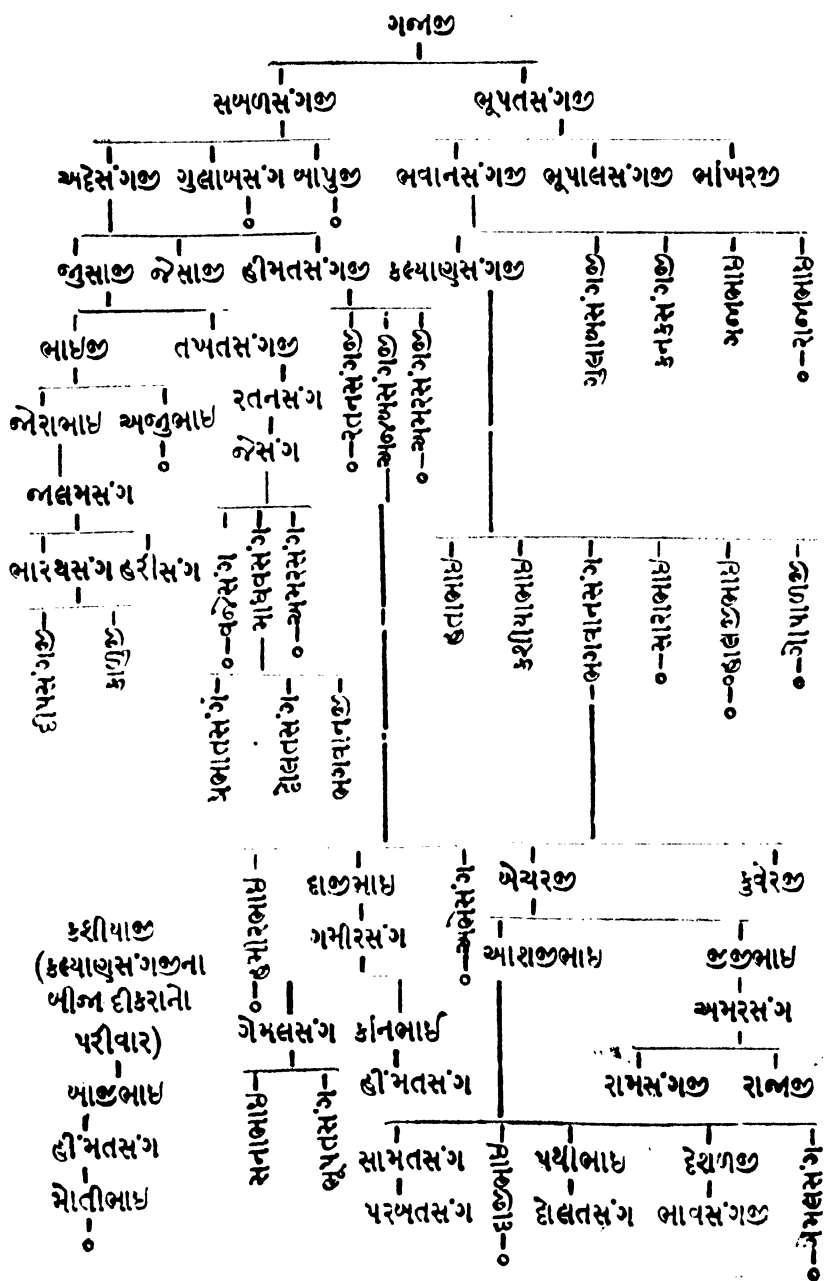 ગજાજી
સબળસંગજી ભૂપતસંગજી
અદેસંગજી ગુલાબસંગ બાપુજી ભવાનસંગજી ભૂપાલસંગજી ભાંખરજી
જુસાજી જેસાજી હીમતસંગજી કલ્યાણસંગજી ગુલાબસંગજી કનકસંગજી મજાભાઇ રાજાભાઇ
ભાઇજી તખતસંગજી રતનસંગજી અજાભસંગજી અમરસંગજી
જોરાભાઇ અજુભાઇ રતનસંગ
જેસંગ
જાલમસંગ
ભારથસંગ હરીસંગ વજેસંગ માધવસંગ અમરસંગ હતાભાઇ કશીયાભાઇ ભગવાનસંગ સારાભાઇ હાલજીભાઇ ગોપાળજી
દીપસંગજી કાળુજી પ્રભાતસંગ દોલતસંગ ભગવાનજી
હમીરભાઇ દાજીભાઇ અભેસંગ ખેચરજી કુવેરજી
ગમીરસંગ આશજીભાઇ જીજીભાઇ
ગેમલસંગ કાંનભાઈ અમરસંગ
હીંમતસંગ રામસંગજી રાજાજી
સનાભાઇ ભૂપતસંગ સામતસંગ દાજીભાઇ પથીભાઇ દેશળજી ગેમલસંગ
પરબતસંગ દોલતસંગ ભાવસંગજી
કશીયાજી
(કલ્યાણસંગજીના
બીજા દીકરાનો
પરીવાર)
બાજીભાઇ
હીંમતસંગ
મોતીભાઇ